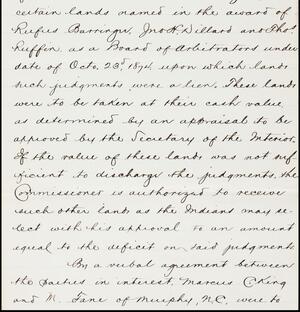 certain lands named in the award of
Rufus Barringer, Jno. H. Dillard and Thos.
Ruffin, as a Board of Arbitrators under
date of Octo. 23rd 1874, upon which lands
such judgments were a lien. These lands
were to be taken at their cash value
as determined by an appraisal to be
approved by the Secretary of the Interior.
If the value of these lands was not suf-
ficient to discharge the judgments, the
Commissioner is authorized to receive
such other lands as the Indians may se-
lect with his approval to an amount
equal to the deficit on said judgments.
By a verbal agreement between
the parties in interest, Marcus C. King
and M. Fane of Murphy, N.C. were to